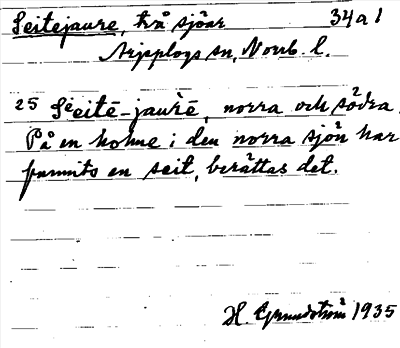 Seitejaure, två sjöar 34a1
Arjeplogs sn, Norrb. l.
25 Seitē-jaurē, norra och södra.
På en holme i den norra sjön har
funnits en seit, berättas det.
H. Grundström 1935